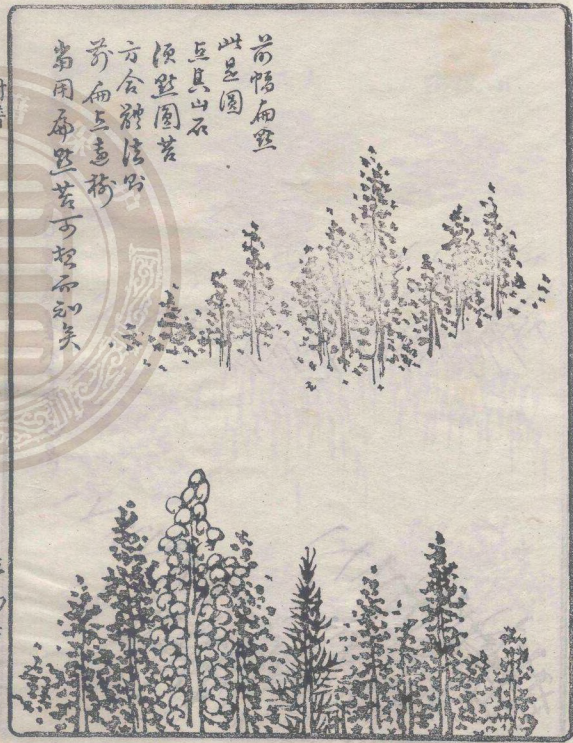 前幅扁點
此是圓
点其山石
須點圓苔
方合體法則
前扁点遠樹
當用扁點苔可想而知矣
樹譜